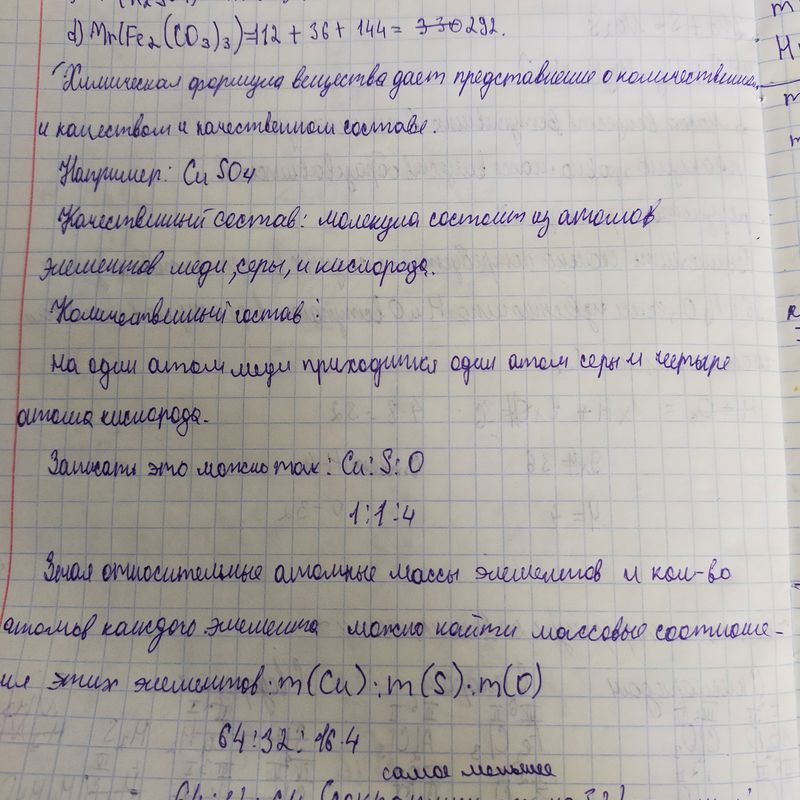 d) Mr(Fe2(CO3)3)=112 + 36 + 144 = 330 292.
Химическая формула вещества дает представление о количественном
и качеством и качественном составе.
Например: CuSO4
Качественный состав: молекула состоит из атомов
элементов меди, серы, и кислорода.
Количественный состав:
На один атом меди приходится один атом серы и четыре
атома кислорода.
Записать это можно так: Cu:S:O
1:1:4
Зная относительные атомные массы элементов и кол-во
атомов каждого элемента можно найти массовые соотноше-
ия этих элементов: m(Cu):m(S):m(O)
64:32:16·4
самое меньшее